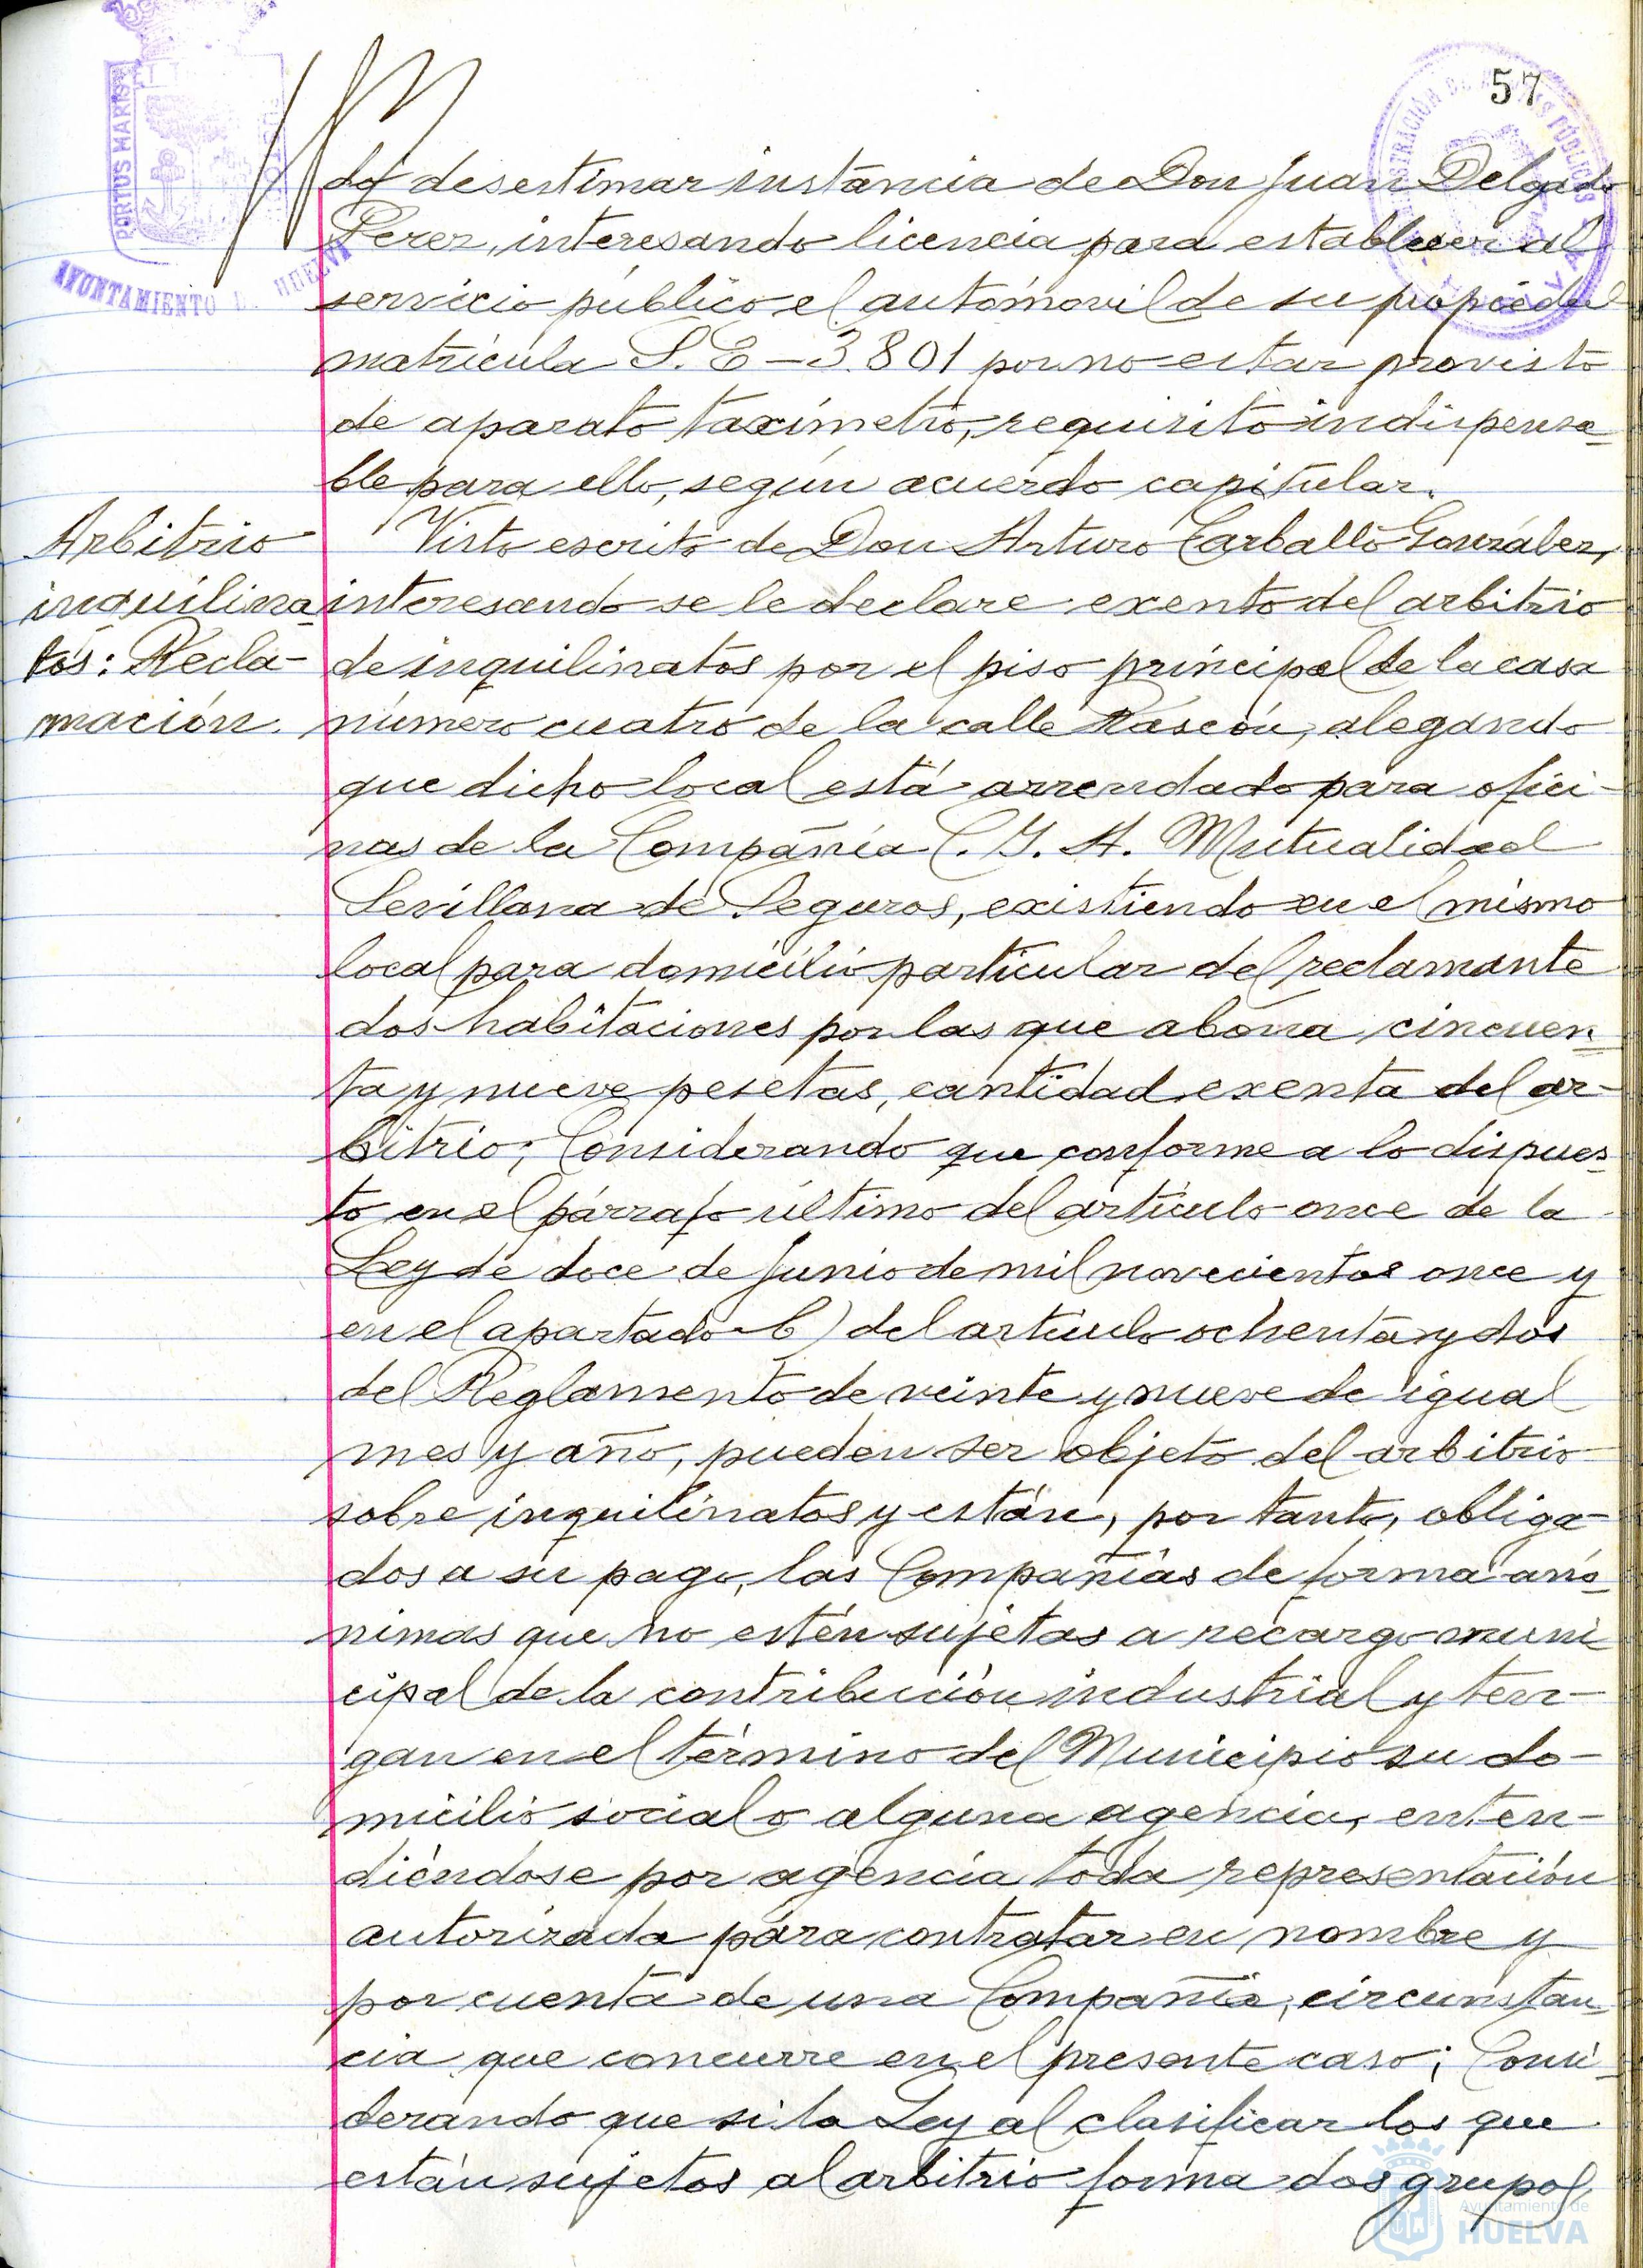 57
PORTUS MARIS
AYUNTAMIENTO DE HUELVA
desestimar instancia de Don Juan Delgado
Perez, interesando licencia para establecer al
servicio público el automovil de su propiedad
matricula S.E-3.801 por no estar provisto
de aparato taxímetro, requisito indispensa-
ble para ello, según acuerdo capitular.
Arbitrio
inquilina-
tos: Recla-
mación.
Visto escrito de Don Arturo Carballo González,
interesando se le declare exento del arbitrio
de inquilinatos por el piso principal de la casa
número cuatro de la calle Rascón, alegando
que dicho local está arrendado para ofici-
nas de la Compañía C.G.A. Mutualidad
Sevillana de Seguros, existiendo en el mismo
local para domicilio particular del reclamante
dos habitaciones por las que abona cincuen-
ta y nueve pesetas, cantidad exenta del ar-
bitrio; Considerando que conforme a lo dispues-
to en el párrafo último del artículo once de la
Ley de doce de Junio de mil novecientos once y
en el apartado b) del artículo ochenta y dos
del Reglamento de veinte y nueve de igual
mes y año, pueden ser objeto del arbitrio
sobre inquilinatos y están, por tanto, obliga-
dos a su pago, las Compañías de forma anó-
nimas que no estén sujetas a recargo muni
cipal de la contribución industrial y ten-
gan en el término del Municipio su do-
micilio social o alguna agencia, enten-
diéndose por agencia toda representación
autorizada para contratar en nombre y
por cuenta de una Compañía, circunstan-
cia que concurre en el presente caso; Consi-
derando que si la Ley al clasificar los que
están sujetos al arbitrio forma dos grupos
Ayuntamiento de
HUELVA